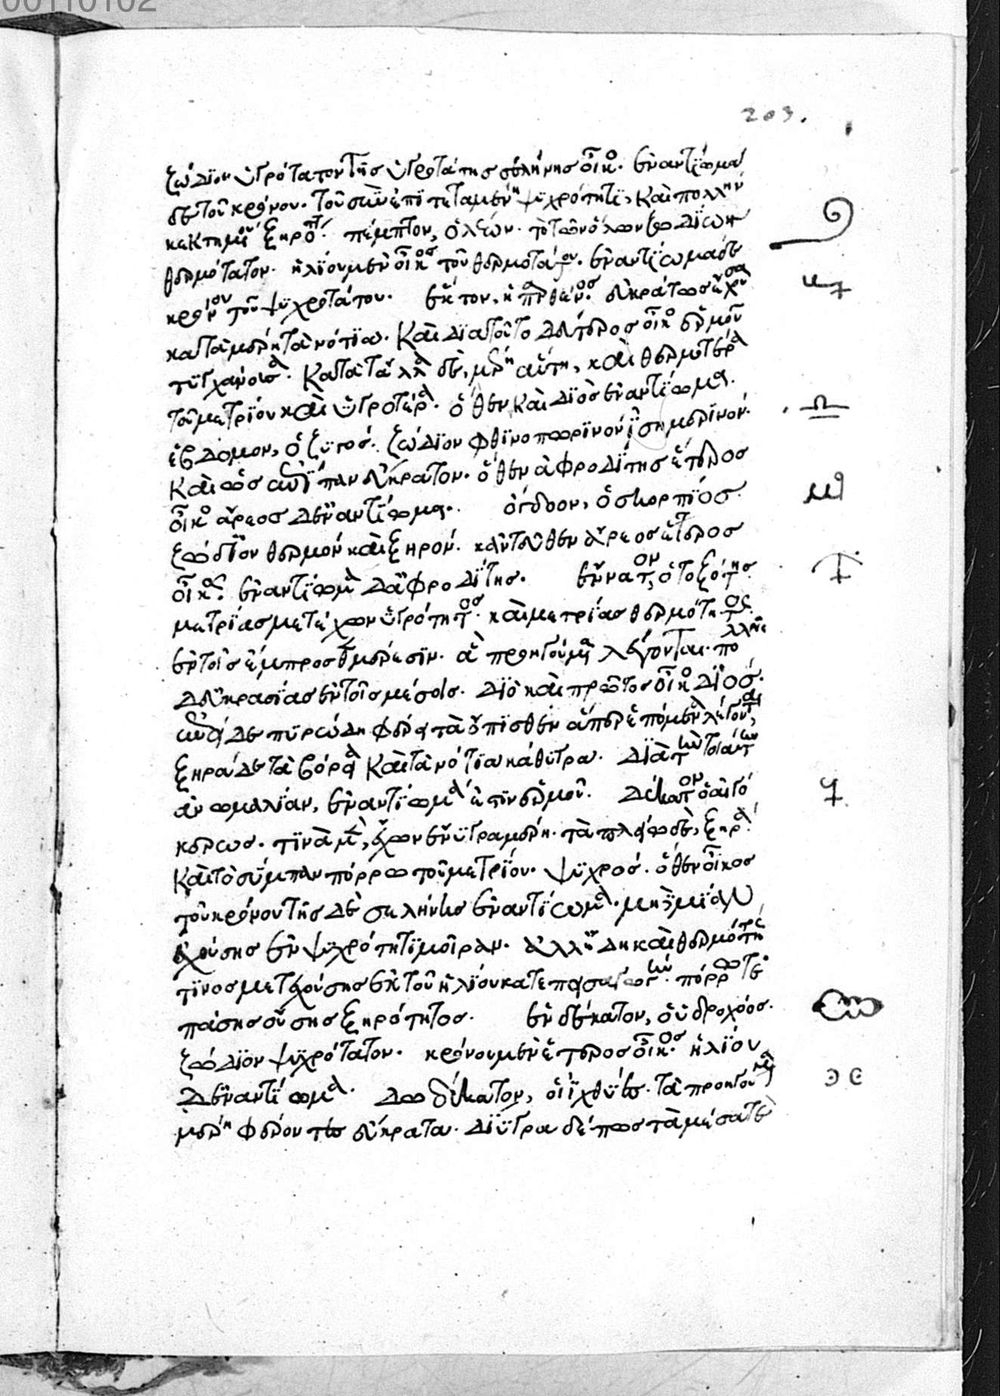 00110102
203.
ζώδϊον ὑγρότατον τῆς ὑγροτάτης σελήνης οἶκος. ἐναντίωμα
δὲ τοῦ κρόνου. τοῦ ἐπιτεταμένη ψυχρότητι, καὶ πολλὴν
κεκτημένου ξηρότητα. πέμπτον, ὁ λέων. τὸ τῶν ὅλων ζωδίων
θερμότατον. ἡλίου μὲν οἶκος τοῦ θερμοτάτου. ἐναντίωμα δὲ
κρόνου τοῦ ψυχροτάτου. ἕκτον, ἡ παρθένος. εὐκράτως ἔχουσα
κατὰ μέρη τὰ νότια. καὶ διατοῦτο δεύτερος οἶκος ἑρμοῦ
τυγχάνουσα. κατὰ τἄλλα δὲ μέρη αὕτη, καὶ θερμοτέρα
τοῦ μετρίου καὶ ὑγροτέρα. ὅθεν καὶ διὸς ἐναντίωμα.
ἕβδομον, ὁ ζυγός. ζώδιον φθινοπωρινὸν ἰσημερινόν.
καὶ ὡς εὔκρατον. ὅθεν ἀφροδίτης ἕτερος
οἶκος ἄρεος δ' ἐναντίωμα. ὄγδοον, ὁ σκορπίος.
ζώδιον θερμὸν καὶ ξηρόν. κἀντεῦθεν ἄρεος ἕτερος
οἶκος. ἐναντίωμα δ' ἀφροδίτης. ἔννατον, ὁ τοξότης.
μετρίας μετέχων ὑγρότητος. καὶ μετρίας θερμότητος.
ἐν τοῖς ἔμπροσθεν μέρεσιν. ἃ προηγούμενα λέγονται. πολλῆς
δ' εὐκρασίας ἐν τοῖς μέσοις. διὸ καὶ πρῶτος οἶκος διός.
δὲ πυρώδη φέρει τὰ ὄπισθεν ἅπερ ἑπόμενα λέγονται,
ξηρὰ δὲ τὰ βόρεια καὶ τὰ νότια κάθυγρα. διὰ τὴν τοιαύτην
ἀνωμαλίαν, ἐναντίωμα ἐστὶν ἑρμοῦ. δέκατον ὁ αἰγό
κερως. τινὰ μὲν ἔχων ἔνυγρα μέρη. τὰ πλείω δὲ, ξηρά.
καὶ τὸ σύμπαν πόρρω τοῦ μετρίου. ψυχρός. ὅθεν οἶκος
τοῦ κρόνου τῆς δὲ σελήνης ἐναντίωμα.
ἐχούσης ἐν ψυχρότητι μοῖραν. ἀλλ' ἤδη καὶ θερμότη
τινος μετεχούσης ἐκ τοῦ ἡλίου πόρρω τὲ
πάσης οὔσης ξηρότητος. ἑνδέκατον, ὁ ὑδροχόος.
ζώδιον ψυχρότατον. κρόνου μὲν ἕτερος οἶκος. ἡλίου
δ' ἐναντίωμα. δωδέκατον, οἱ ἰχθύες. τὰ προηγούμενα
μέρη φέροντες εὔκρατα. δίυγρα δέ πως τὰ μέσα τὲ